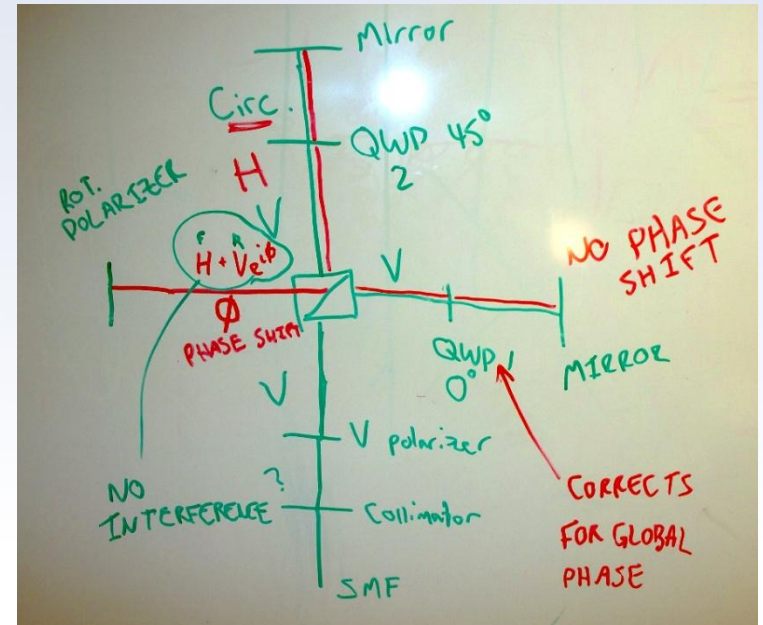 Mirror
Circ.
QWP 45°
2
H
ROT.
POLARIZER
V
F R
H + Ve^iϕ
V
NO PHASE
SHIFT
Ø
PHASE SHIFT
QWP 1
0°
MIRROR
V
V polarizer
NO
INTERFERENCE ?
Collimator
SMF
CORRECTS
FOR GLOBAL
PHASE